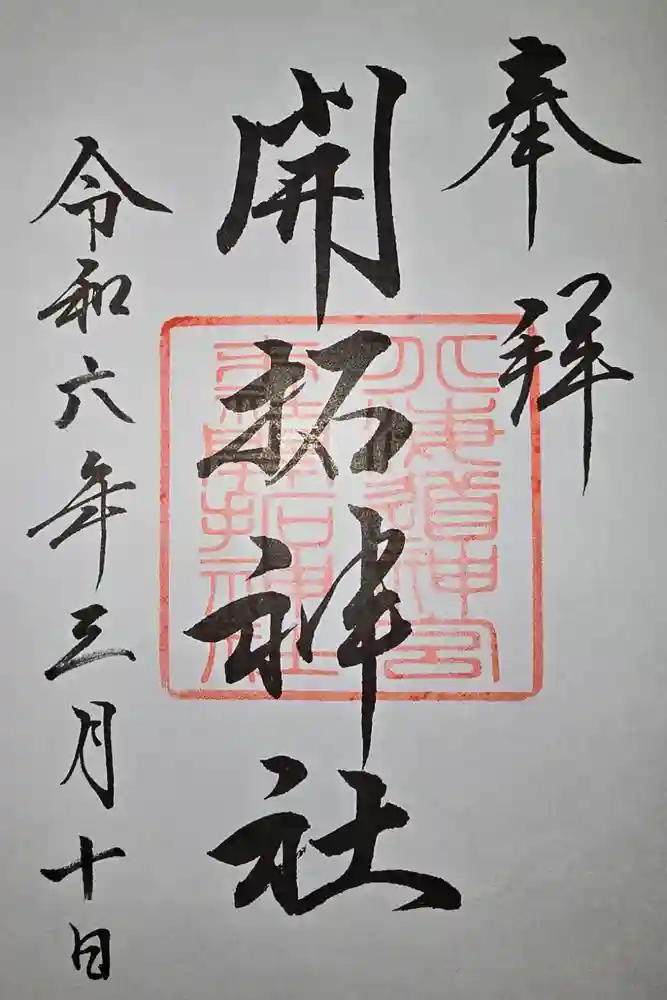 奉拜
開拓神社
北海道神宮
末社開拓神社
令和六年三月十日